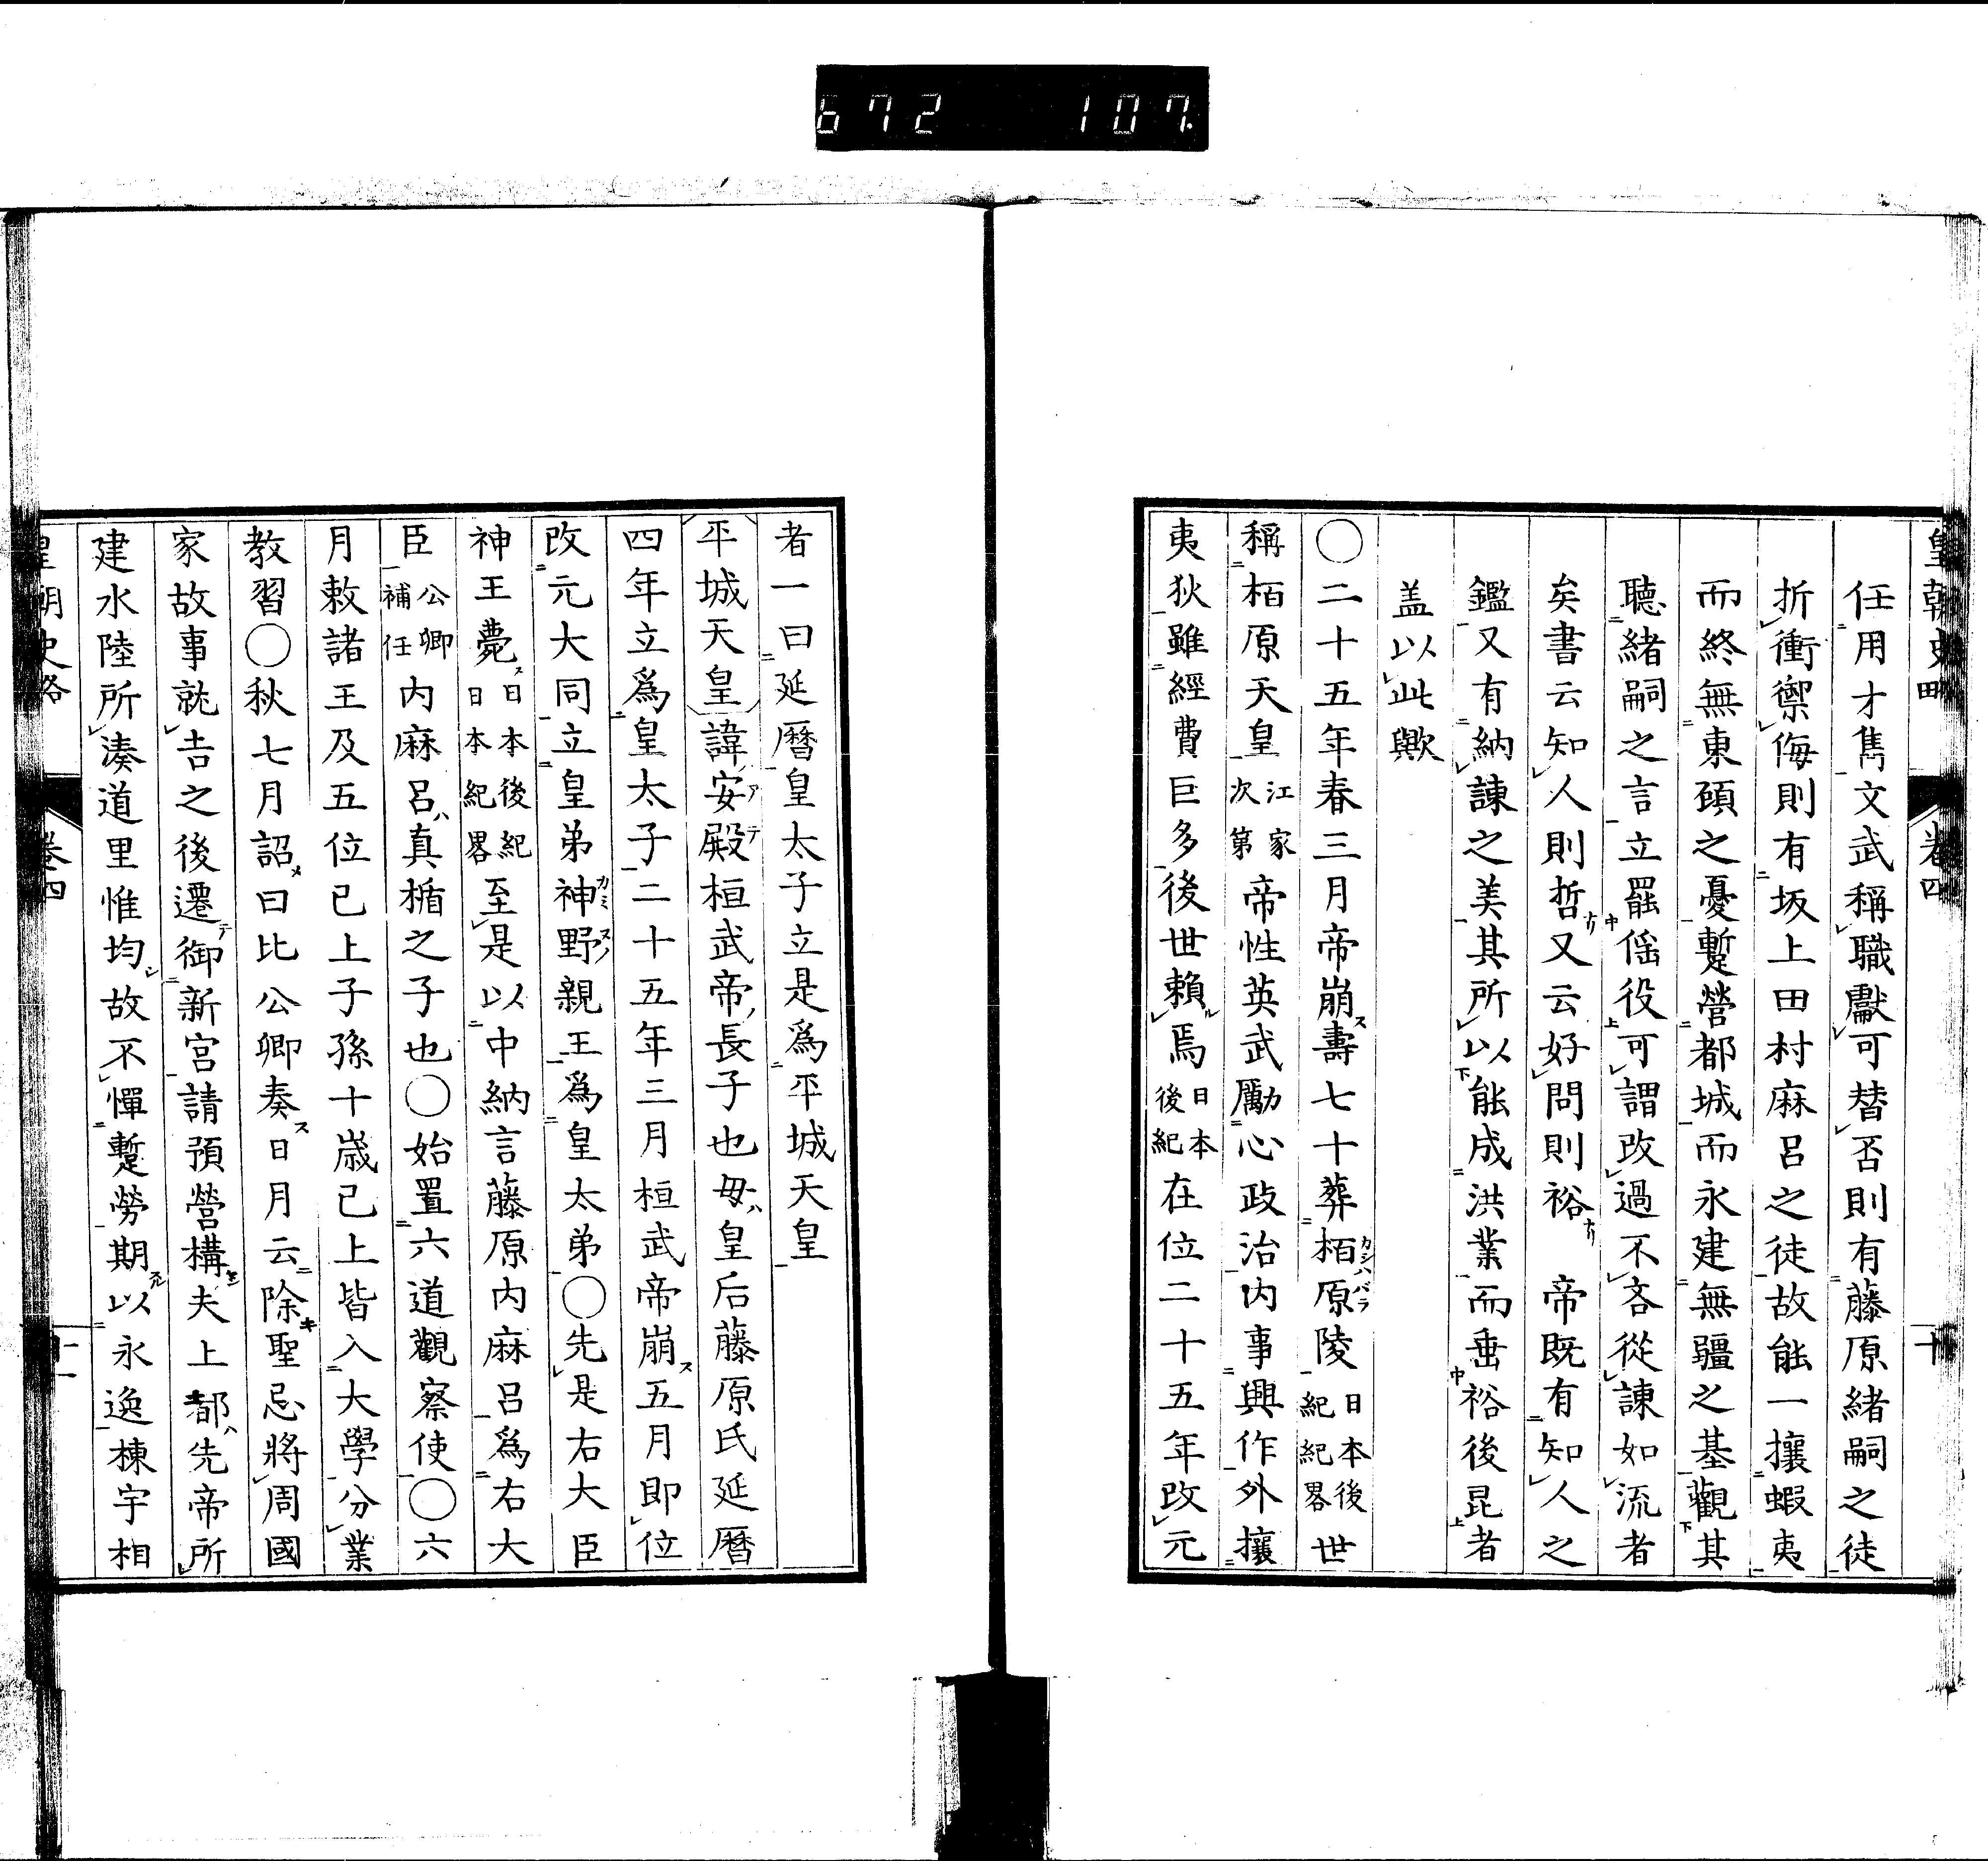 672 107
皇朝史略 卷四 十
任用才雋文武稱職獻可替否則有藤原緒嗣之徒
折衝禦侮則有坂上田村麻呂之徒故能一攘蝦夷
而終無東顧之憂蹔營都城而永建無疆之基觀其
聽緒嗣之言立罷傜役可謂改過不吝從諫如流者
矣書云知人則哲ナリ又云好問則裕ナリ 帝既有知人之
鑑又有納諫之美其所以能成洪業而垂裕後昆者
盖以此歟
○二十五年春三月帝崩ス壽七十葬栢原カシハバラ陵日本後紀紀畧世
稱栢原天皇江家次第帝性英武勵心政治内事興作外攘
夷狄雖經費巨多後世賴ル焉日本後紀在位二十五年改元
者一曰延曆皇太子立是爲平城天皇
平城天皇諱安殿アテ桓武帝ノ長子也母ハ皇后藤原氏延曆
四年立爲皇太子二十五年三月桓武帝崩ス五月即位
改元大同立皇弟神野カミヌノ親王爲皇太弟○先是右大臣
神王薨ス日本後紀日本紀畧至是以中納言藤原内麻呂爲右大
臣公卿補任内麻呂ハ真楯之子也○始置六道觀察使○六
月敕諸王及五位已上子孫十歲已上皆入大學分業
教習○秋七月詔メ曰比公卿奏ス日月云除キ聖忌將周國
家故事就吉之後遷テ御新宮請預營構セヨ夫上都ハ先帝所
建水陸所湊道里惟均シ故不憚蹔勞期以永逸棟宇相
皇朝史略 卷四 十一